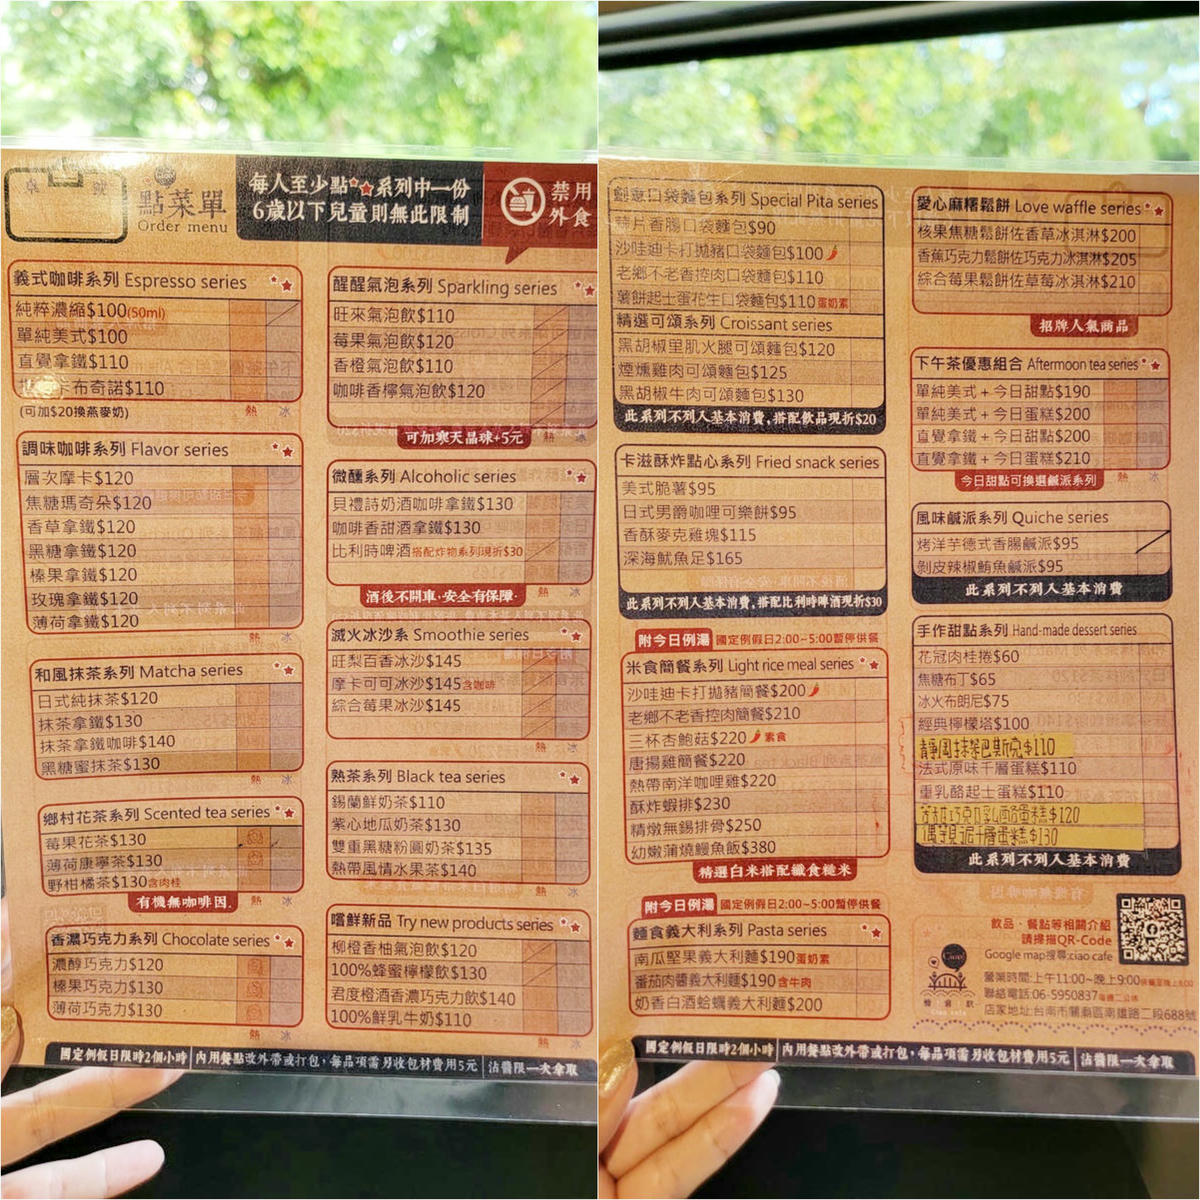 卓 號
點菜單
Order menu
每人至少點★★系列中一份
6歲以下兒童則無此限制
禁用
外食
義式咖啡系列 Espresso series
純粹濃縮$100(50ml)
單純美式$100
直覺拿鐵$110
卡布奇諾$110
(可加$20換燕麥奶)
熱 冰
調味咖啡系列 Flavor series
層次摩卡$120
焦糖瑪奇朵$120
香草拿鐵$120
黑糖拿鐵$120
榛果拿鐵$120
玫瑰拿鐵$120
薄荷拿鐵$120
熱 冰
和風抹茶系列 Matcha series
日式純抹茶$120
抹茶拿鐵$130
抹茶拿鐵咖啡$140
黑糖蜜抹茶$130
熱 冰
鄉村花茶系列 Scented tea series
莓果花茶$130
薄荷康寧茶$130
野柑橘茶$130含肉桂
有機無咖啡因.
熱 冰
香濃巧克力系列 Chocolate series
濃醇巧克力$120
榛果巧克力$130
薄荷巧克力$130
熱 冰
醒醒氣泡系列 Sparkling series
旺來氣泡飲$110
莓果氣泡飲$120
香橙氣泡飲$110
咖啡香檸氣泡飲$120
可加寒天晶球+5元
熱 冰
微醺系列 Alcoholic series
貝禮詩奶酒咖啡拿鐵$130
咖啡香甜酒拿鐵$130
比利時啤酒搭配炸物系列現折$30
酒後不開車·安全有保障·
熱 冰
滅火冰沙系 Smoothie series
旺梨百香冰沙$145
摩卡可可冰沙$145含咖啡
綜合莓果冰沙$145
熱 冰
熟茶系列 Black tea series
錫蘭鮮奶茶$110
紫心地瓜奶茶$130
雙重黑糖粉圓奶茶$135
熱帶風情水果茶$140
熱 冰
嚐鮮新品 Try new products series
柳橙香柚氣泡飲$120
100%蜂蜜檸檬飲$130
君度橙酒香濃巧克力飲$140
100%鮮乳牛奶$110
熱 冰
國定例假日限時2個小時 內用餐點改外帶或打包，每品項需另收包材費用5元 沾醬限一次拿取
創意口袋麵包系列 Special Pita series
蒜片香腸口袋麵包$90
沙哇迪卡打拋豬口袋麵包$100
老鄉不老香控肉口袋麵包$110
薯餅起士蛋花生口袋麵包$110蛋奶素
精選可頌系列 Croissant series
黑胡椒里肌火腿可頌麵包$120
煙燻雞肉可頌麵包$125
黑胡椒牛肉可頌麵包$130
此系列不列入基本消費，搭配飲品現折$20
卡滋酥炸點心系列 Fried snack series
美式脆薯$95
日式男爵咖哩可樂餅$95
香酥麥克雞塊$115
深海魷魚足$165
此系列不列入基本消費，搭配比利時啤酒現折$30
附今日例湯 國定例假日2:00~5:00暫停供餐
米食簡餐系列 Light rice meal series
沙哇迪卡打拋豬簡餐$200
老鄉不老香控肉簡餐$210
三杯杏鮑菇$220素食
唐揚雞簡餐$220
熱帶南洋咖哩雞$220
酥炸蝦排$230
精燉無錫排骨$250
幼嫩蒲燒鰻魚飯$380
精選白米搭配纖食糙米
附今日例湯 國定例假日2:00~5:00暫停供餐
麵食義大利系列 Pasta series
南瓜堅果義大利麵$190蛋奶素
番茄肉醬義大利麵$190含牛肉
奶香白酒蛤蠣義大利麵$200
愛心麻糬鬆餅 Love waffle series
核果焦糖鬆餅佐香草冰淇淋$200
香蕉巧克力鬆餅佐巧克力冰淇淋$205
綜合莓果鬆餅佐草莓冰淇淋$210
招牌人氣商品
下午茶優惠組合 Afternoon tea series
單純美式+今日甜點$190
單純美式+今日蛋糕$200
直覺拿鐵+今日甜點$200
直覺拿鐵+今日蛋糕$210
今日甜點可換選鹹派系列
熱 冰
風味鹹派系列 Quiche series
烤洋芋德式香腸鹹派$95
剝皮辣椒鮪魚鹹派$95
此系列不列入基本消費
手作甜點系列 Hand-made dessert series
花冠肉桂捲$60
焦糖布丁$65
冰火布朗尼$75
經典檸檬塔$100
靜岡抹茶巴斯克$110
法式原味千層蛋糕$110
重乳酪起士蛋糕$110
巧克力乳酪蛋糕$120
千層蛋糕$130
此系列不列入基本消費
飲品·餐點等相關介紹
請掃描QR-Code
Google map搜尋:ciao cafe
Ciao
營業時間:上午11:00~晚上9:00
聯絡電話:06-5950837每週二公休
店家地址:台南市關廟區南雄路二段688號
國定例假日限時2個小時 內用餐點改外帶或打包，每品項需另收包材費用5元 沾醬限一次拿取